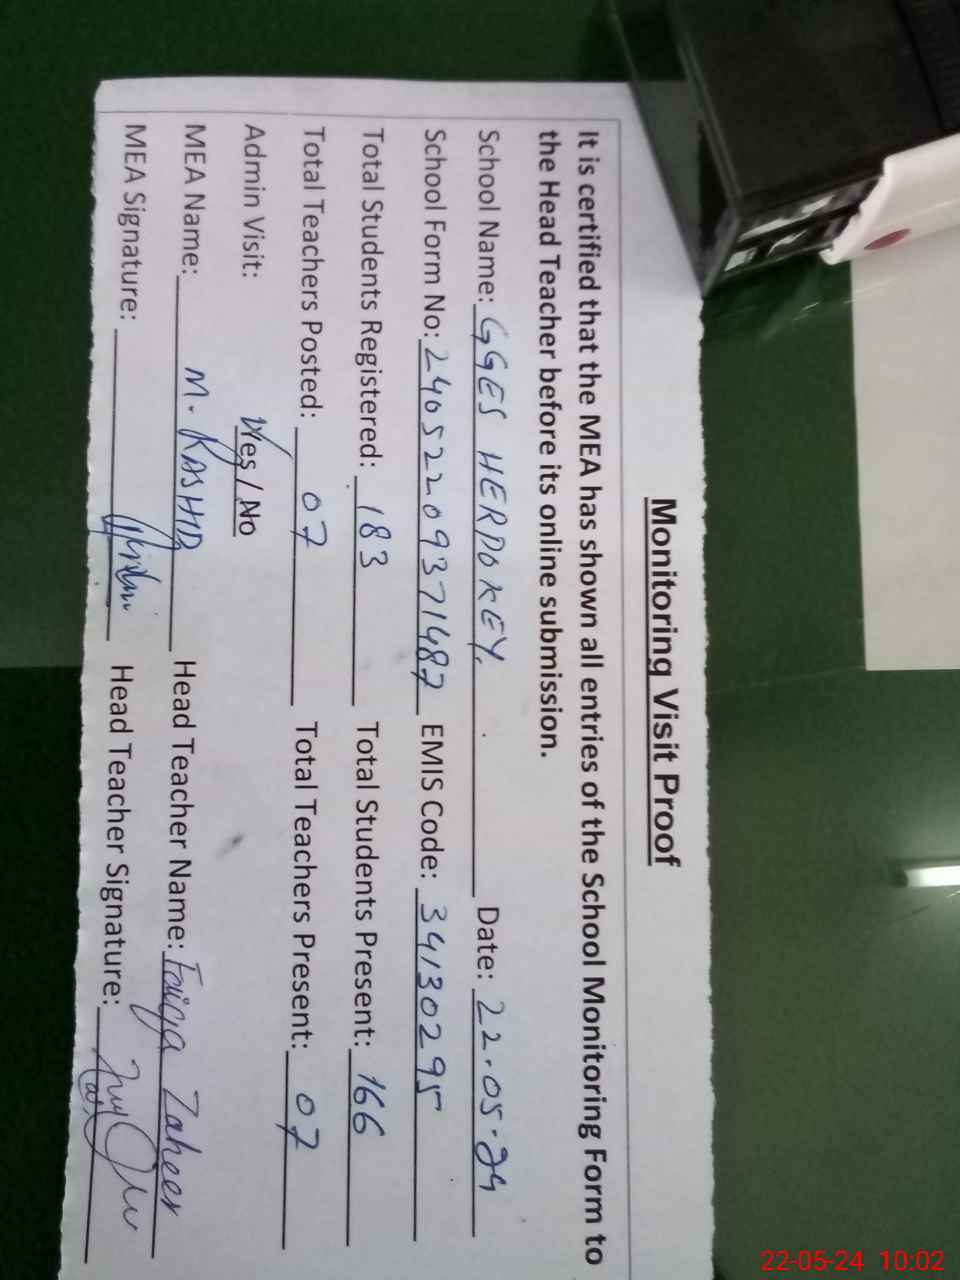 Monitoring Visit Proof
It is certified that the MEA has shown all entries of the School Monitoring Form to
the Head Teacher before its online submission.
School Name: GGES HERDOKEY. Date: 22.05.24
School Form No: 24052209371487 EMIS Code: 34130295
Total Students Registered: 183 Total Students Present: 166
Total Teachers Posted: 07 Total Teachers Present: 07
Admin Visit: Yes / No
MEA Name: M. RASHID Head Teacher Name: Faiqa Zaheer
MEA Signature: Head Teacher Signature:
22-05-24 10:02